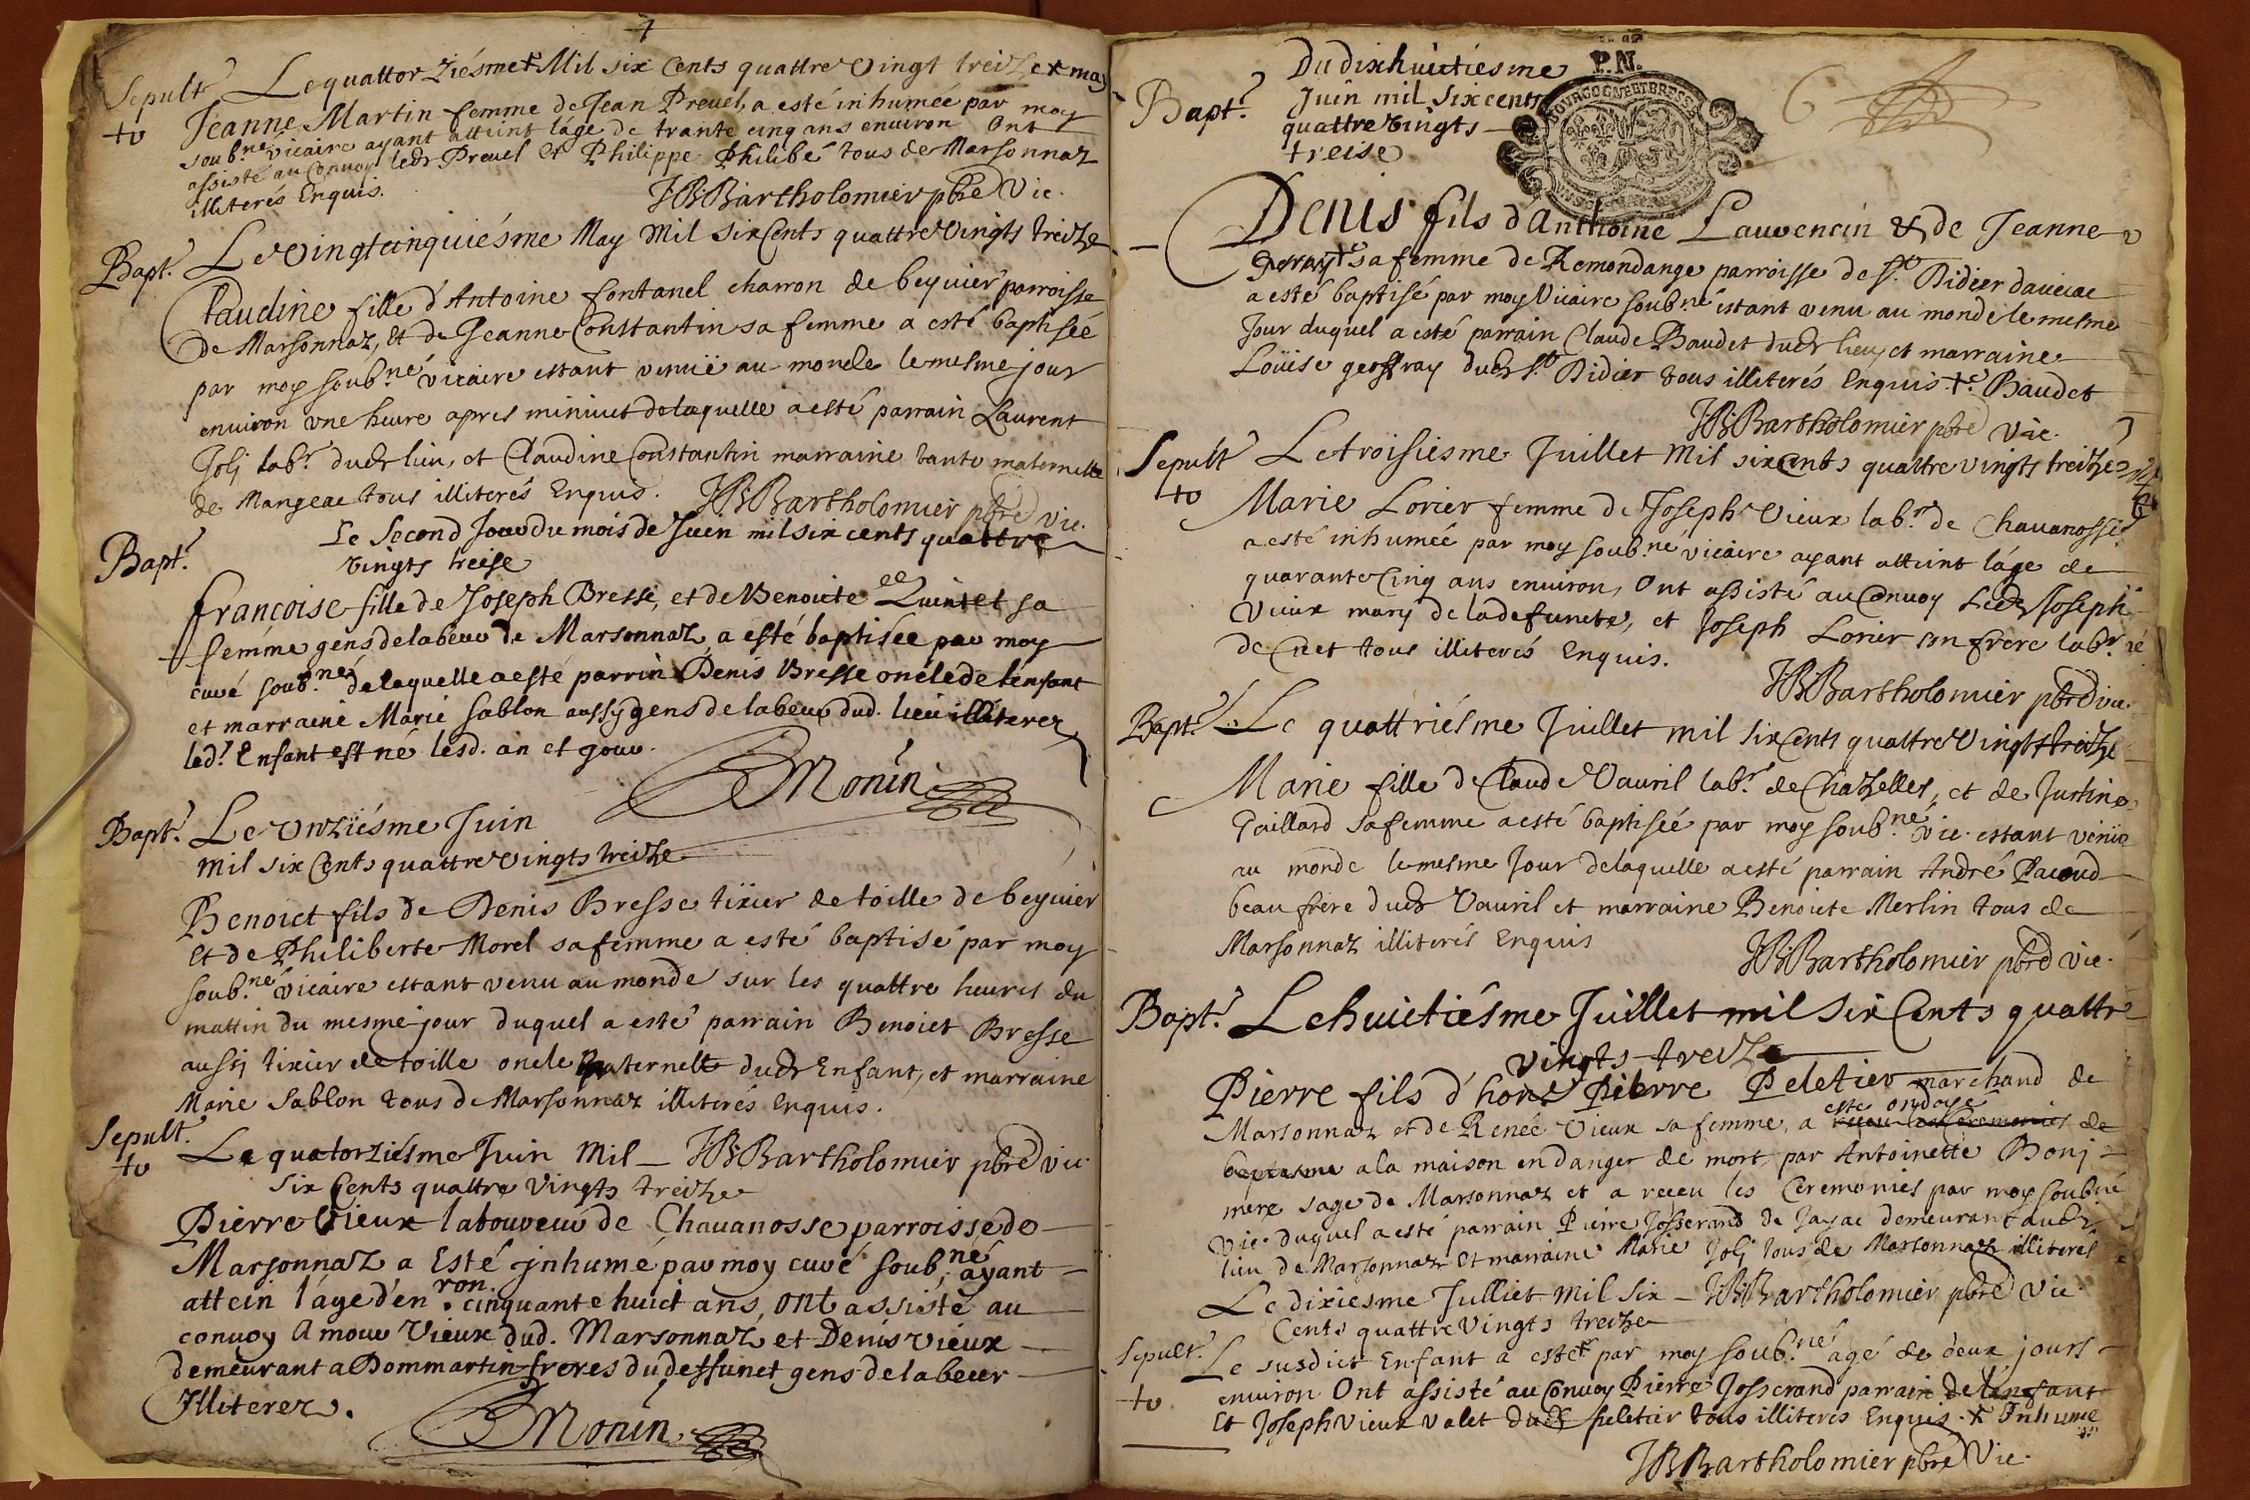 Sepult.re Le quattorziésme + Mil six Cents quattre Vingt treize + may
+ Jeanne Martin femme de Jean Preuel, a esté inhumeé par moy
soub.né vicaire ayant atteint láge de trante cinq ans environ Ont
assisté au Convoy ledt Preuel et Philippe Philibé tous de Marsonnaz
illiterés Enquis.
JB Bartholomier pbre Vic.
Bapt. Le vingtcinquiésme May mil six Cents quattre Vingts treize
Claudine fille d'Antoine fontanel charron de beyuier parroisse
de Marsonnaz, et de Jeanne Constantin sa femme a esté baptiseé
par moy soub.né vicaire estant venuë au monde le mesme jour
environ vne heure apres miniuet de laquelle a esté parrain Laurent
Jolj labr. dudt lieu, et Claudine Constantin marraine tante maternelle
de Mangeac tous illiterés Enquis.
JB Bartholomier pbre vic.
Bapt. Le Second Jour du mois de Juen mil six cents quattre
vingts treise
francoise fille de Joseph Bresse, et de Benoiete Quintet sa
femme gens de labeur de Marsonnaz a esté baptiseé par moy
curé soub.né de laquelle a esté parrin Denis Bresse oncle de lenfant
et marraine Marie Sablon aussy gens de labeur dud. lieu illiterez
led.t Enfant est né lesd. an et jour.
Monin
Bapt. Le Vnziésme Juin
mil six Cents quattre Vingts treize
Benoict fils de Denis Bresse tixier de toille de beyuier
et de Philiberte Morel sa femme a esté baptisé par moy
soub.né vicaire estant venu au monde sur les quattre heures du
mattin du mesme jour duquel a esté parrain Benoict Bresse
aussj tixier de toille oncle paternell dudt Enfant, et marraine
Marie Sablon tous de Marsonnaz illiterés Enquis.
Sepult. Le quatorziésme Juin Mil — JB Bartholomier pbre vic
+ six Cents quattre Vingts treize
Pierre Vieux laboureur de Chauanosse parroisse de
Marsonnaz a Esté jnhumé par moy curé soub.né ayant
attein láge d'environ cinquante huict ans, ont assisté au
conuoy Amour Vieux dud. Marsonnaz et Denis vieux
demeurant a Dommartin freres du deffunct gens de labeur
Jlliterez.
Monin
Bapt. Du dixhuictiesme
Juin mil six cents
quattre vingts
treise
P.N.
BOURGOGNE ET BRESSE
6
Denis fils d'Anthoine Lauuencin & de Jeanne
sa femme de Remondange parroisse de St. Didier dauciac
a esté baptisé par moy Vicaire soub.né estant venu au monde le mesme
Jour duquel a esté parrain Claude Baudet dudt lieu et marraine
Loüise geoffray dudt St. Didier tous illiterés Enquis +e. Baudet
JB Bartholomier pbre Vic.
Sepult Le troisiesme Juillet Mil six Cents quattre vingts treize
+ Marie Lorier femme de Joseph Vieux labr. de Chauanosse
a esté inhumeé par moy soub.né vicaire ayant atteint láge de
quarante Cinq ans environ, Ont assisté au Convoy Ledt Joseph
Vieux mary de la defuncte, et Joseph Lorier son frere labr.
de Cuet tous illiterés Enquis.
JB Bartholomier pbre vic.
Bapt. Le quattriésme Juillet mil six Cents quattre Vingts treize
Marie fille de Claude Vauril labr. de Chazelles, et de Justine
Gaillard sa femme a esté baptiseé par moy soub.né vic. estant venuë
au monde le mesme Jour de laquelle a esté parrain André Pacoud
beau frere dudt Vauril et marraine Benoiete Merlin tous de
Marsonnaz illiterés Enquis
JB Bartholomier pbre Vic.
Bapt. Le huictiésme Juillet mil six Cents quattre
vingts treize
Pierre fils d'hon.e Pierre Peletier marchand de
Marsonnaz et de Reneé Vieux sa femme, a esté ondoyé receu les Ceremonies de
baptesme a la maison en danger de mort par Antoinette Bonj
mere sage de Marsonnaz et a receu les Ceremonies par moy soub.né
Vic. duquel a esté parrain Pierre Josserand de Jayac demeurant audt
lieu de Marsonnaz Et marraine Marie Jolj tous de Marsonnaz illiterés
Le dixiesme Julliet mil six — JB Bartholomier pbre Vic.
Cents quattre Vingts treize
Sepult. Le susdict Enfant a esté + par moy soub.né agé de deux jours
+ environ Ont assisté au Convoy Pierre Josserand parrain de lenfant
Et Joseph Vieux valet dudt peletier tous illiterés Enquis. + Inhumé
JB Bartholomier pbre Vic.